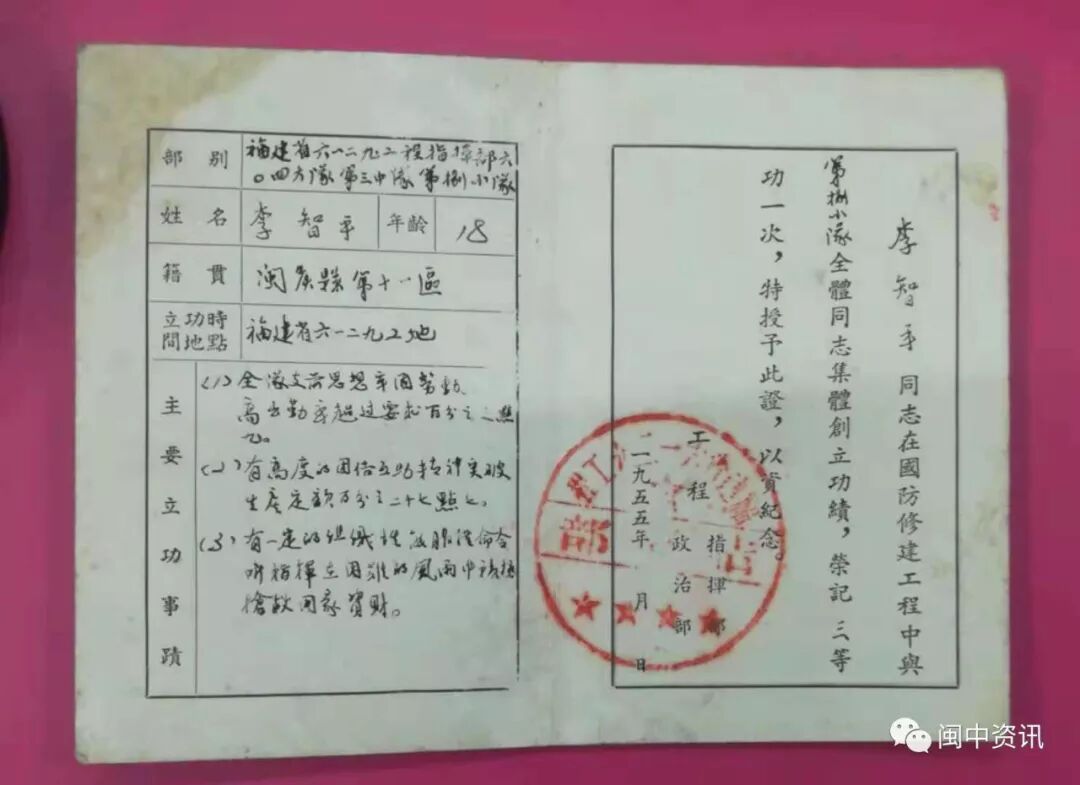 部别
福建省六一二九工程指揮部六
〇四大隊第三中隊第捌小隊
姓名
李智平
年齡
18
籍貫
闽矦縣第十一區
立功時
間地點
福建省六一二九工地
主要立功事蹟
(1) 全隊 思想 勞動、
高出勤率超过要求百分之 點
九。
(2) 有高度的团结互助 突破
生產定額百分之二十七點七。
(3) 有一定的组織性 服從命令
听指揮在困難的風雨中積極
搶救国家資財。
李智平同志在國防修建工程中與
第捌小隊全體同志集體創立功績，榮記三等
功一次，特授予此證，以資紀念。
工程指揮部
政治部
一九五五年 月 日
闽中资讯